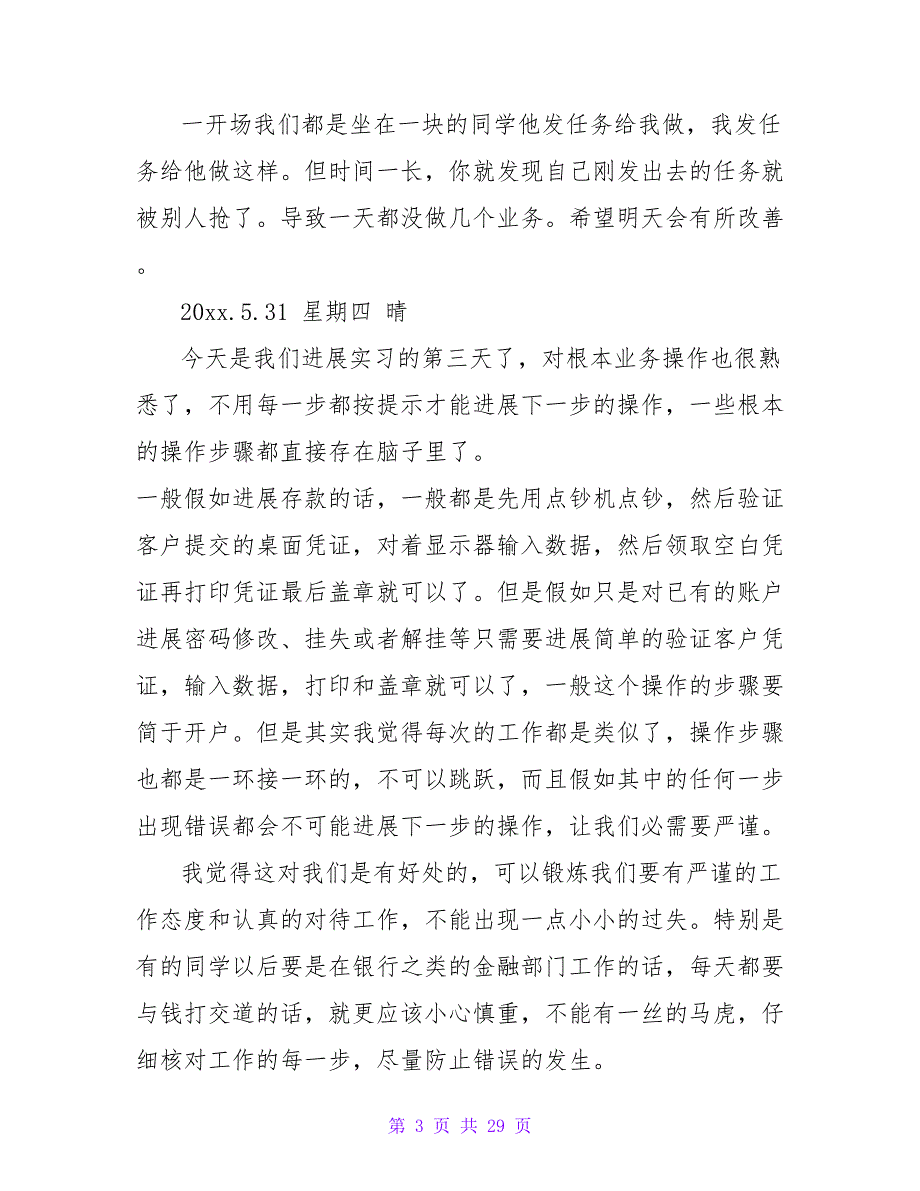 一开场我们都是坐在一块的同学他发任务给我做，我发任
务给他做这样。但时间一长，你就发现自己刚发出去的任务就
被别人抢了。导致一天都没做几个业务。希望明天会有所改善
。
20xx.5.31 星期四 晴
今天是我们进展实习的第三天了，对根本业务操作也很熟
悉了，不用每一步都按提示才能进展下一步的操作，一些根本
的操作步骤都直接存在脑子里了。
一般假如进展存款的话，一般都是先用点钞机点钞，然后验证
客户提交的桌面凭证，对着显示器输入数据，然后领取空白凭
证再打印凭证最后盖章就可以了。但是假如只是对已有的账户
进展密码修改、挂失或者解挂等只需要进展简单的验证客户凭
证，输入数据，打印和盖章就可以了，一般这个操作的步骤要
简于开户。但是其实我觉得每次的工作都是类似了，操作步骤
也都是一环接一环的，不可以跳跃，而且假如其中的任何一步
出现错误都会不可能进展下一步的操作，让我们必需要严谨。
我觉得这对我们是有好处的，可以锻炼我们要有严谨的工
作态度和认真的对待工作，不能出现一点小小的过失。特别是
有的同学以后要是在银行之类的金融部门工作的话，每天都要
与钱打交道的话，就更应该小心慎重，不能有一丝的马虎，仔
细核对工作的每一步，尽量防止错误的发生。
第 3 页 共 29 页